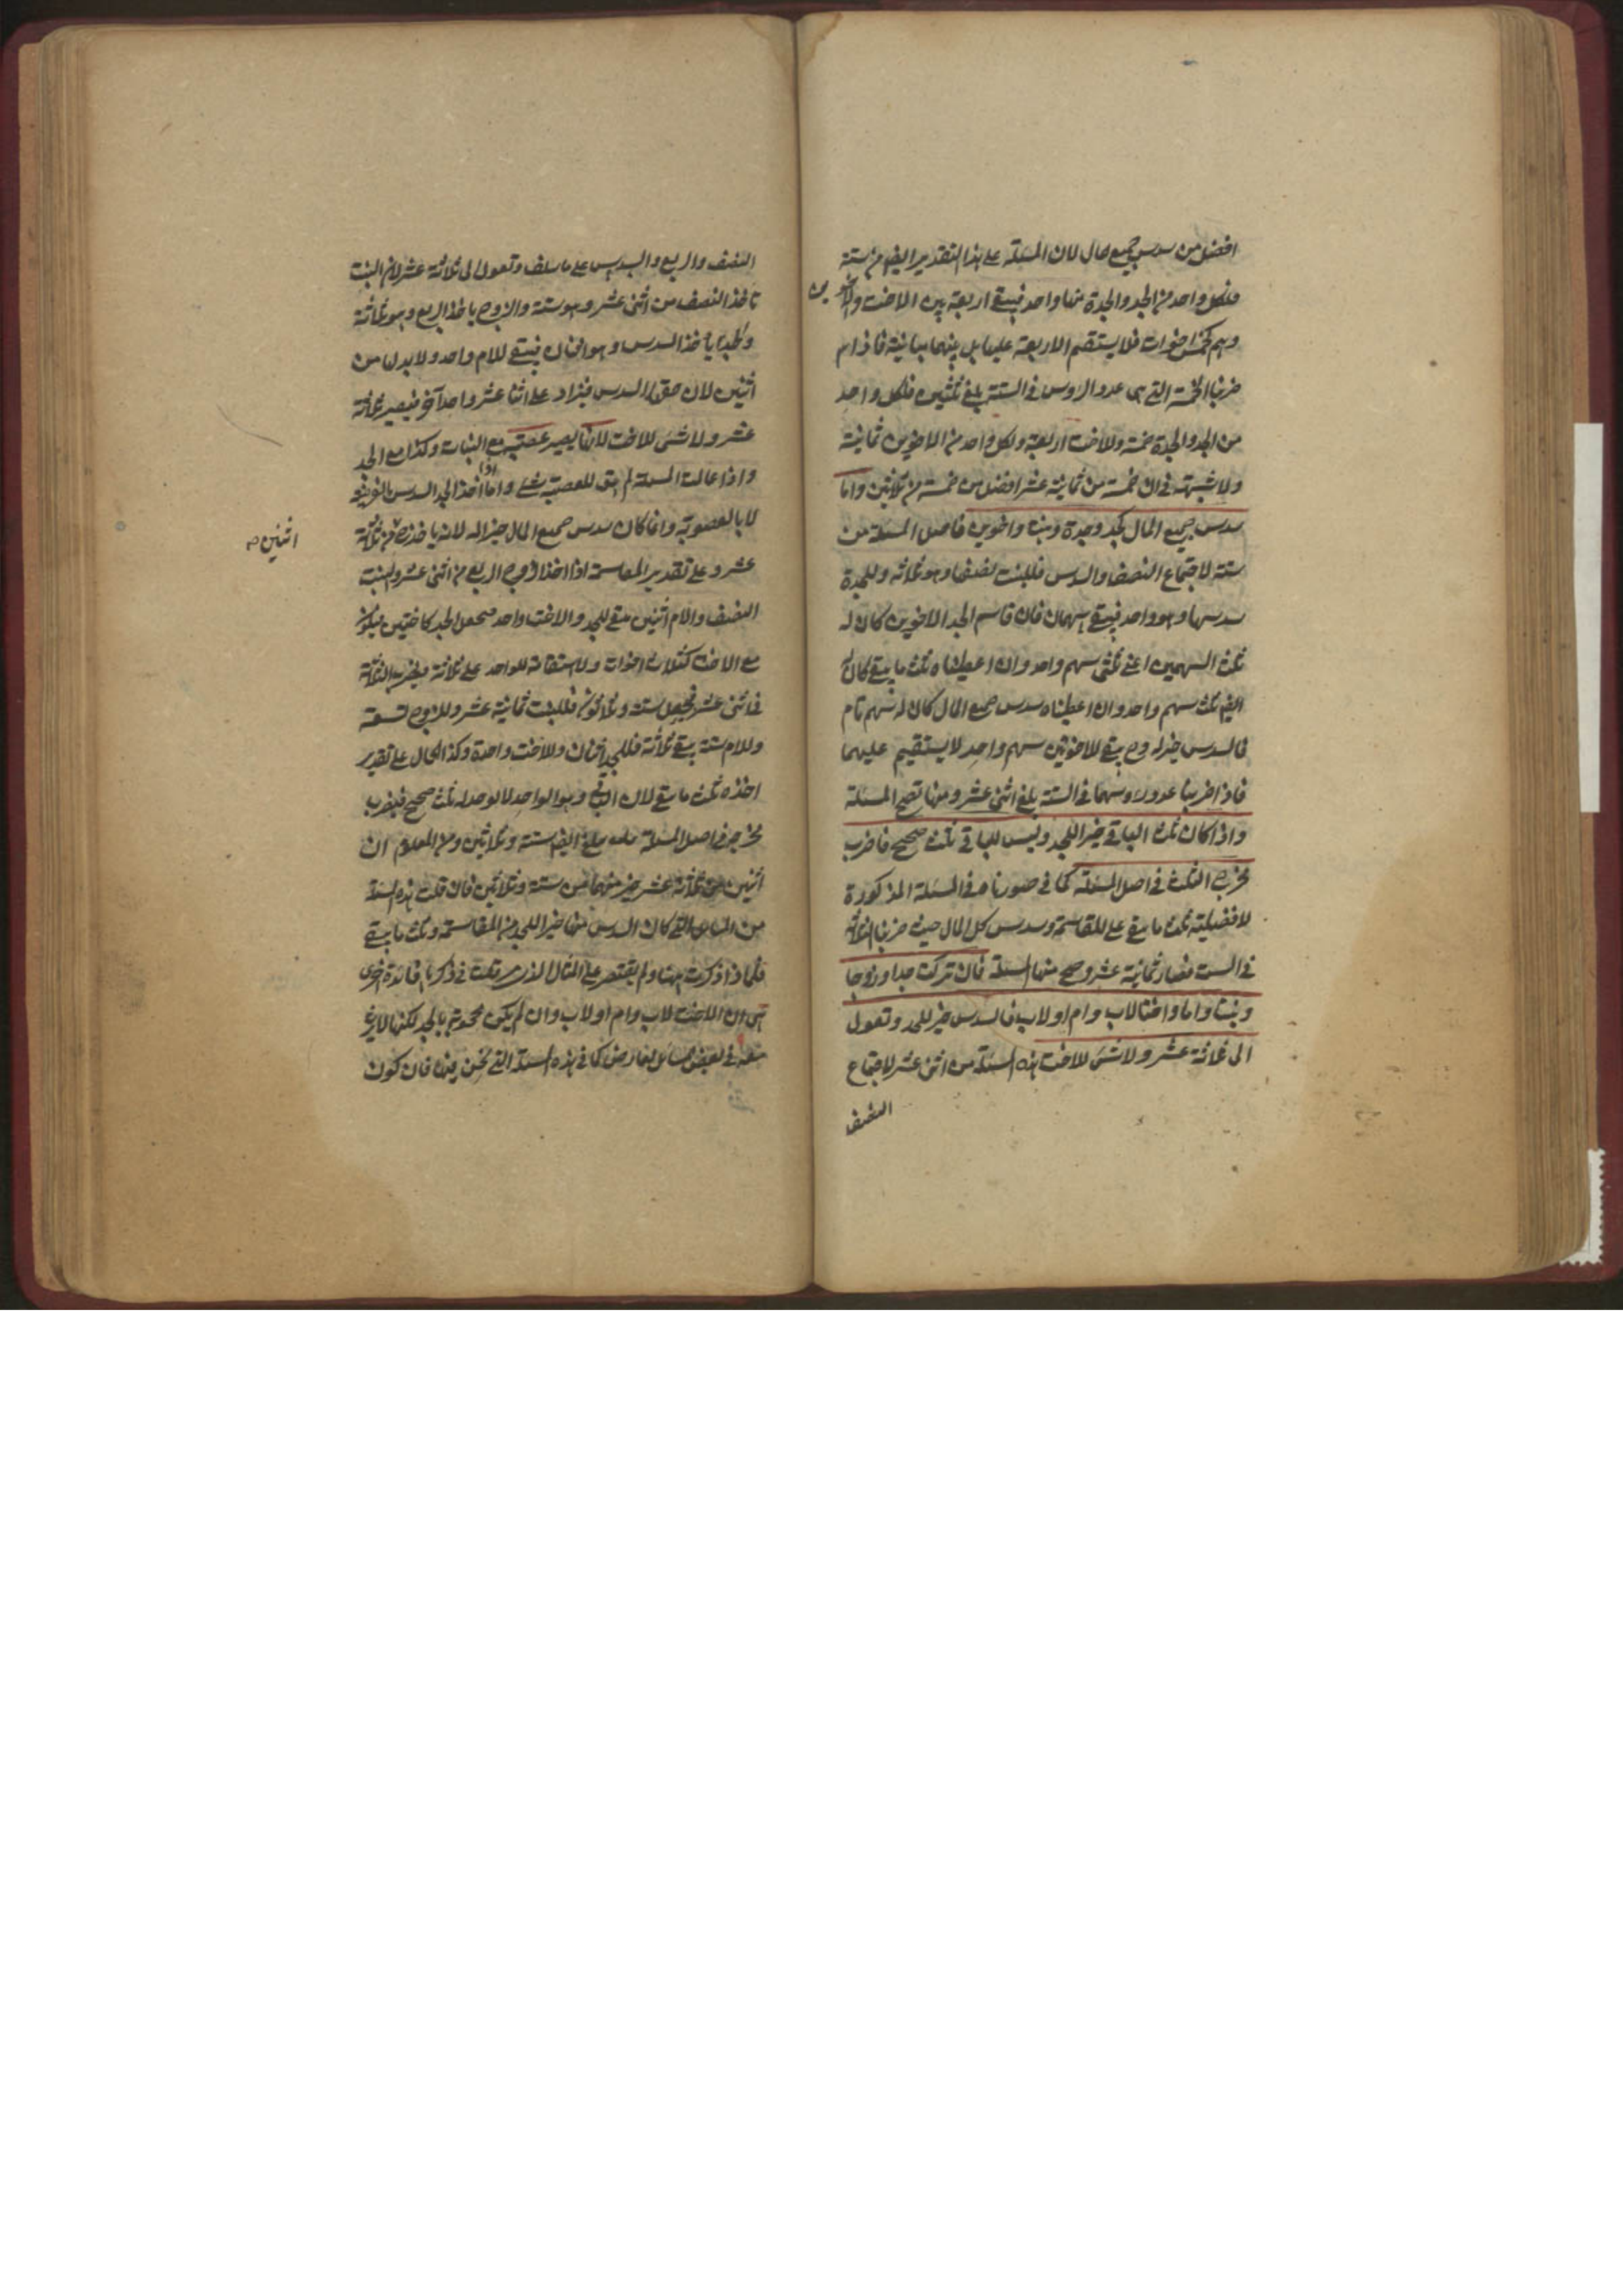 افضل من سدس جميع المال لان المسئلة على هذا التقدير ايضا من ستة
فلكل واحد من الجد والجدة منها واحد فيبقى اربعة بين الاخت والاخوين
وهم كخمس اخوات فلا يستقيم الاربعة عليها بل بينهما مباينة فاذا
ضربنا الخمسة التى هى عدد الرؤس فى الستة بلغ ثلثين فلكل واحد
من الجد والجدة خمسة وللاخت اربعة ولكل واحد من الاخوين ثمانية
ولا شبهة فى ان خمسة من ثمانية عشر افضل من خمسة من ثلاثين واما
سدس جميع المال كجد وجدة وبنت واخوين فاصل المسئلة من
ستة لاجتماع النصف والسدس فللبنت نصفها وهو ثلاثة وللجدة
سدسها وهو واحد فيبقى سهمان فان قاسم الجد الاخوين كان له
ثلث السهمين اعنى ثلثى سهم واحد وان اعطيناه ثلث ما يبقى كان له
ايضا ثلث سهم واحد وان اعطيناه سدس جميع المال كان له سهم تام
فالسدس خير له وح يبقى للاخوين سهم واحد لا يستقيم عليهما
فاذا ضربنا عدد رؤسهما فى الستة بلغ اثنى عشر ومنها تصح المسئلة
واذا كان ثلث الباقى خيرا للجد وليس للباقى ثلث صحيح فاضرب
مخرج الثلث فى اصل المسئلة كما فى صورنا فى المسئلة المذكورة
لافضلية ثلث ما يبقى على المقاسمة وسدس كل المال حيث ضربنا الثلاثة
فى الستة فصار ثمانية عشر وصح منها المسئلة فان تركت جدا وزوجا
وبنتا واما واختا لاب وام او لاب فالسدس خير للجد وتعول
الى ثلاثة عشر ولا شئ للاخت هذه المسئلة من اثنى عشر لاجتماع
النصف
النصف والربع والسدس على ما سلف وتعول الى ثلاثة عشر لان البنت
تاخذ النصف من اثنى عشر وهو ستة والزوج ياخذ الربع وهو ثلاثة
والجد ياخذ السدس وهو اثنان فيبقى للام واحد ولا بد من
اثنين لان حقها السدس فيزاد على اثنا عشر واحدا آخر فيصير ثلاثة
عشر ولا شئ للاخت لانها يصير عصبة مع البنات وكذا مع الجد
واذا عالت المسئلة لم يبق للعصبة شئ واما اذا اخذ الجد السدس بالفرض
لا بالعصوبة وانما كان سدس جميع المال خيرا له لانه ياخذ ح من ثلاثة
اثنين صح
عشر وعلى تقدير المقاسمة اذا اخذ الزوج الربع من اثنى عشر والبنت
النصف والام اثنين يبقى للجد والاخت واحد فنجعل الجد كاختين فيكون
مع الاخت كثلاث اخوات ولا استقامة للواحد على ثلاثة فيضرب الثلاثة
فى اثنى عشر فيحصل ستة وثلاثون فللبنت ثمانية عشر وللزوج تسعة
وللام ستة يبقى ثلاثة فللجد اثنان وللاخت واحدة وكذا الحال على تقدير
اخذه ثلث ما يبقى لان الباقى وهو الواحد لا يوجد له ثلث صحيح فيضرب
مخرجه فى اصل المسئلة يبلغ ايضا ستة وثلاثين ومن المعلوم ان
اثنين من ثلاثة عشر خير منهما من ستة وثلاثين فان قلت هذه المسئلة
من المسائل التى كان السدس منها خيرا للجد من المقاسمة وثلث ما يبقى
فلماذا ذكرت ههنا ولم يقتصر على المثال الذى مر قلت فى ذكرها فائدة اخرى
هى ان الاخت لاب وام او لاب وان لم يكن محجوبة بالجد لكنها لا يرث
معه فى بعض المسائل لعارض كما فى هذه المسئلة التى نحن فيها فان كون